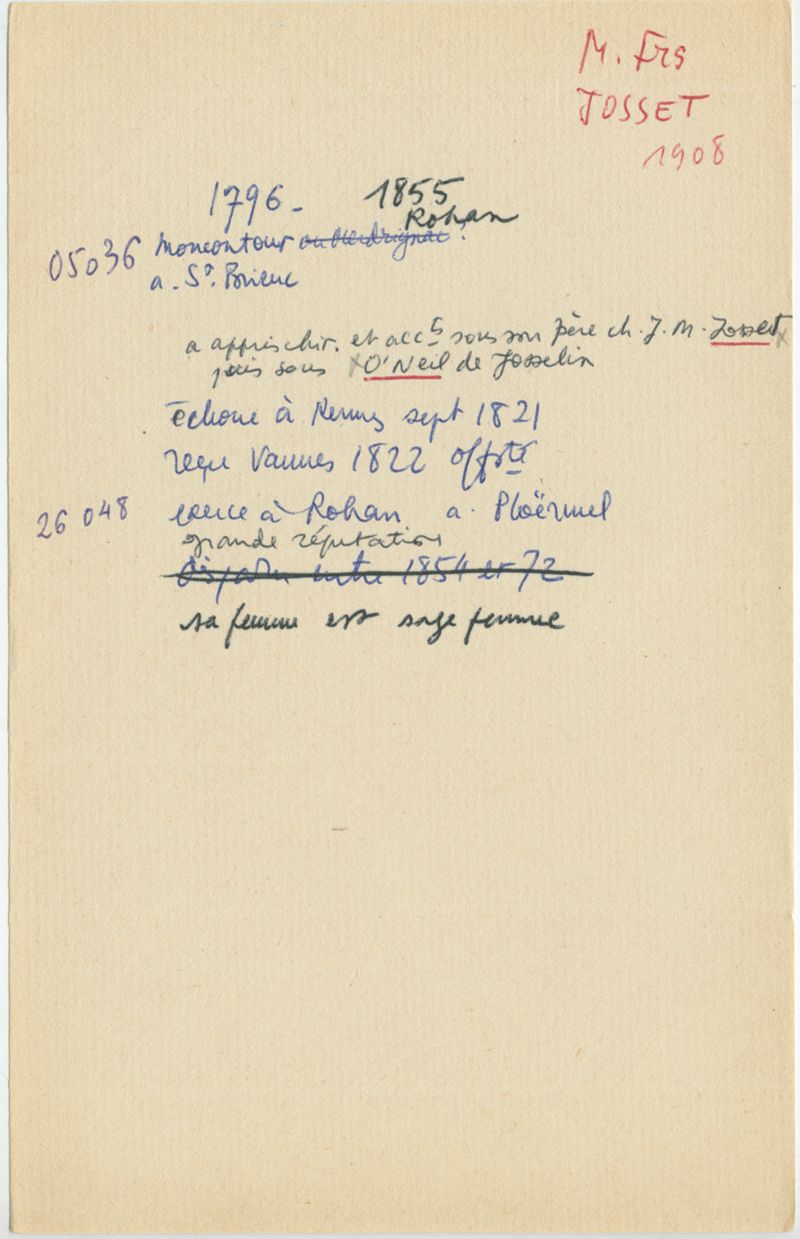 M. Frs
JOSSET
1908
1796 - 1855
Rohan
05036 Moncontour ou Merdrignac ?
a. St. Brieuc
a appris chir. et accts sous son père ch. J. M. Josset
puis sous O'Neil de Josselin
échoue à Rennes sept 1821
reçu Vannes 1822 offste
26 048 exerce à Rohan a. Ploërmel
grande réputation
disparu entre 1854 et 72
sa femme est sage femme